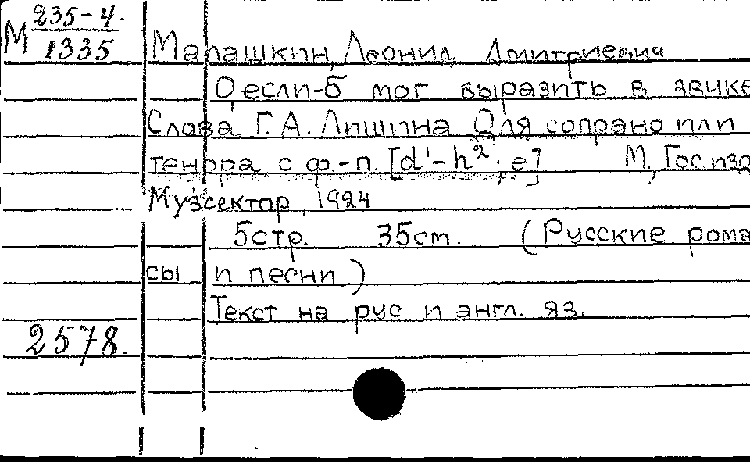 М 235-4.
1335
Малашкин, Леонид Дмитриевич
О если-б мог выразить в звуке
Слова Г. А. Лишина Для сопрано или
тенора с ф.-п. [d'-h²; e] М, Гос. изд
Музсектор, 1924
5 стр. 35 cm. (Русские рома
сы и песни)
Текст на рус и англ. яз.
2578.